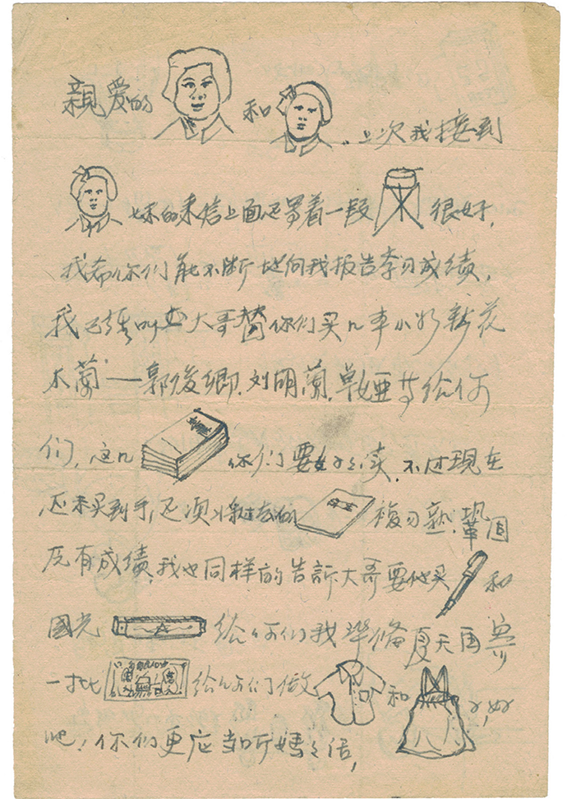 親爱的 和 . 上次我接到
妹的来信上面还写着一段 很好,
我希你们能不断地向我报告学习成绩,
我已经叫 大哥替你们买几本小 新花
木蘭——郭俊卿.刘胡蘭. 等给你
们,这几 你们要好好读.不过现在
还未买到手,还须将 的 複习熟.鞏固
原有成绩.我也同样的告訴大哥要他买 和
國光 给你们我準備夏天再寄
一批 给你们做 和 好
吧!你们更应当听媽媽话,